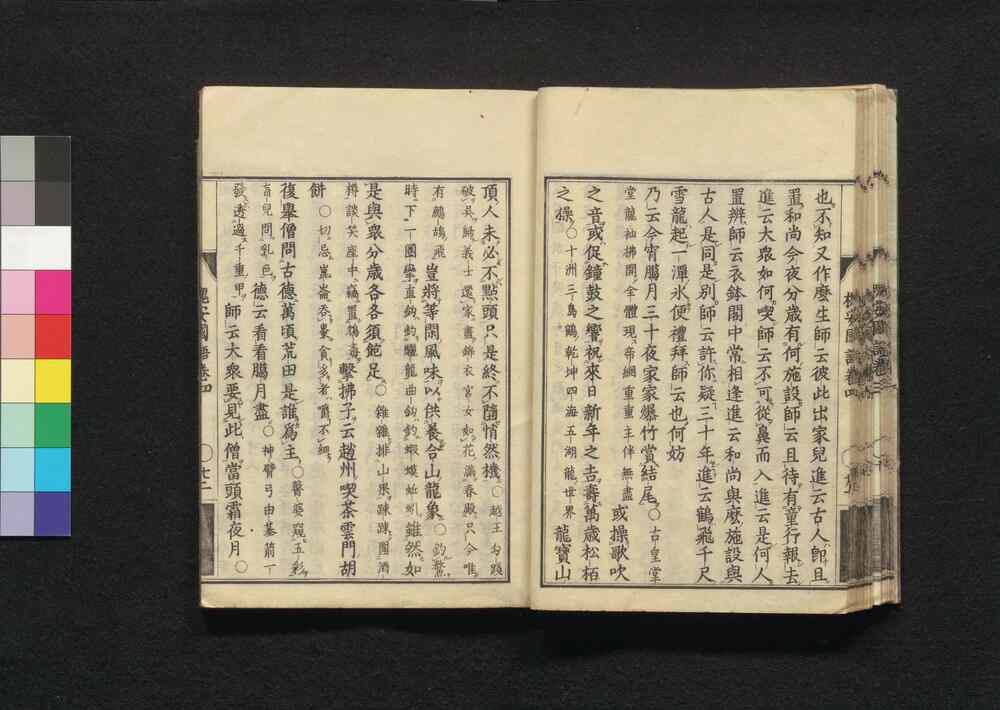 也不知又作麼生師云彼此出家兒進云古人卽且
置和尚今夜分歲有何施設師云且待有童行報去
進云大衆如何喫師云不可從鼻而入進云是何人
置辨師云衣鉢閣中常相逢進云和尚與麼施設與
古人是同是別師云許你疑三十年進云鶴飛千尺
雪龍起一潭氷便禮拜師云也何妨
乃云今宵臘月三十夜家家爆竹賞結尾○古皇堂
堂龍袖拂開全體現帝網重重主伴無盡或操歌吹
之音或促鐘鼓之響祝來日新年之吉壽萬歲松栢
之操○十洲三島鶴乾坤四海五湖龍世界龍寶山
頂人未必不點頭只是終不隨悄然機○越王勾踐
破吳歸義士還家盡錦衣宮女如花滿春殿只今唯
有鷓鴣飛豈將等閑風味以供養合山龍象○釣鰲
時下一圈攣直鈎釣驪龍曲鈎釣蝦蟆蚯蚓雖然如
是與衆分歲各各須飽足○雜雜排山果踈踈圍酒
樽談笑座中竊置鴆毒擊拂子云趙州喫茶雲門胡
餅○切忌崑崙呑棗貪多者嚼不細
復擧僧問古德萬頃荒田是誰爲主○瞖婆窺五彩
盲兒問乳色德云看看臘月盡○神臂弓由基箭一
發透過千重甲師云大衆要見此僧當頭霜夜月○
槐安國語卷四
○廿二